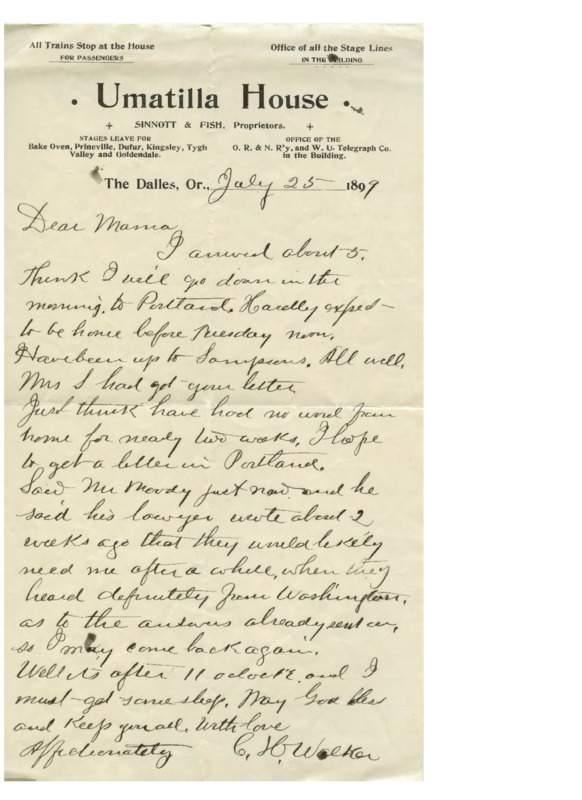 All Trains Stop at the House
FOR PASSENGERS
Office of all the Stage Lines
IN THE BUILDING
Umatilla House
SINNOTT & FISH, Proprietors.
STAGES LEAVE FOR
Bake Oven, Prineville, Dufur, Kingsley, Tygh
Valley and Goldendale.
OFFICE OF THE
O. R. & N. R'y, and W. U. Telegraph Co.
in the Building.
The Dalles, Or., July 25 1899
Dear Mama
I arrived about 5.
Think I will go down in the
morning, to Portland. Hardly expect
to be home before Tuesday noon.
Have been up to Sampsons. All well.
Mrs S had got your letter
Just think have had no word from
home for nearly two weeks. I hope
to get a letter in Portland.
Said Mr Moody just now and he
said his lawyer wrote about 2
weeks ago that they would likely
need me after a while, when they
heard definitely from Washington,
as to the answers already sent on,
so I may come back again.
Well its after 11 oclock and I
must get some sleep. May God bless
and keep you all. With love
Affectionately C. H. Walker